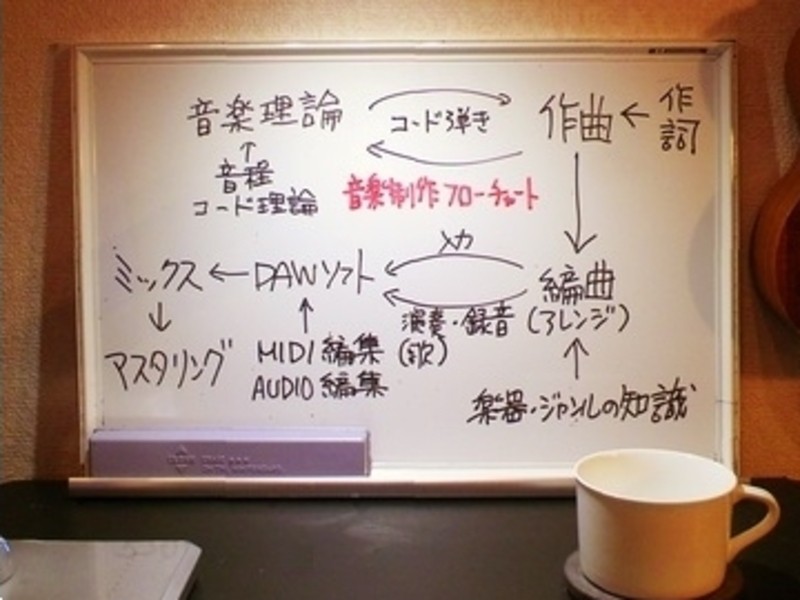 音楽理論
コード弾き
作曲
作詞
音程
コード理論
音楽制作フローチャート
ミックス
DAWソフト
入力
編曲
演奏・録音
(アレンジ)
(歌)
アスタリング
MIDI編集
AUDIO編集
楽器・ジャンルの知識